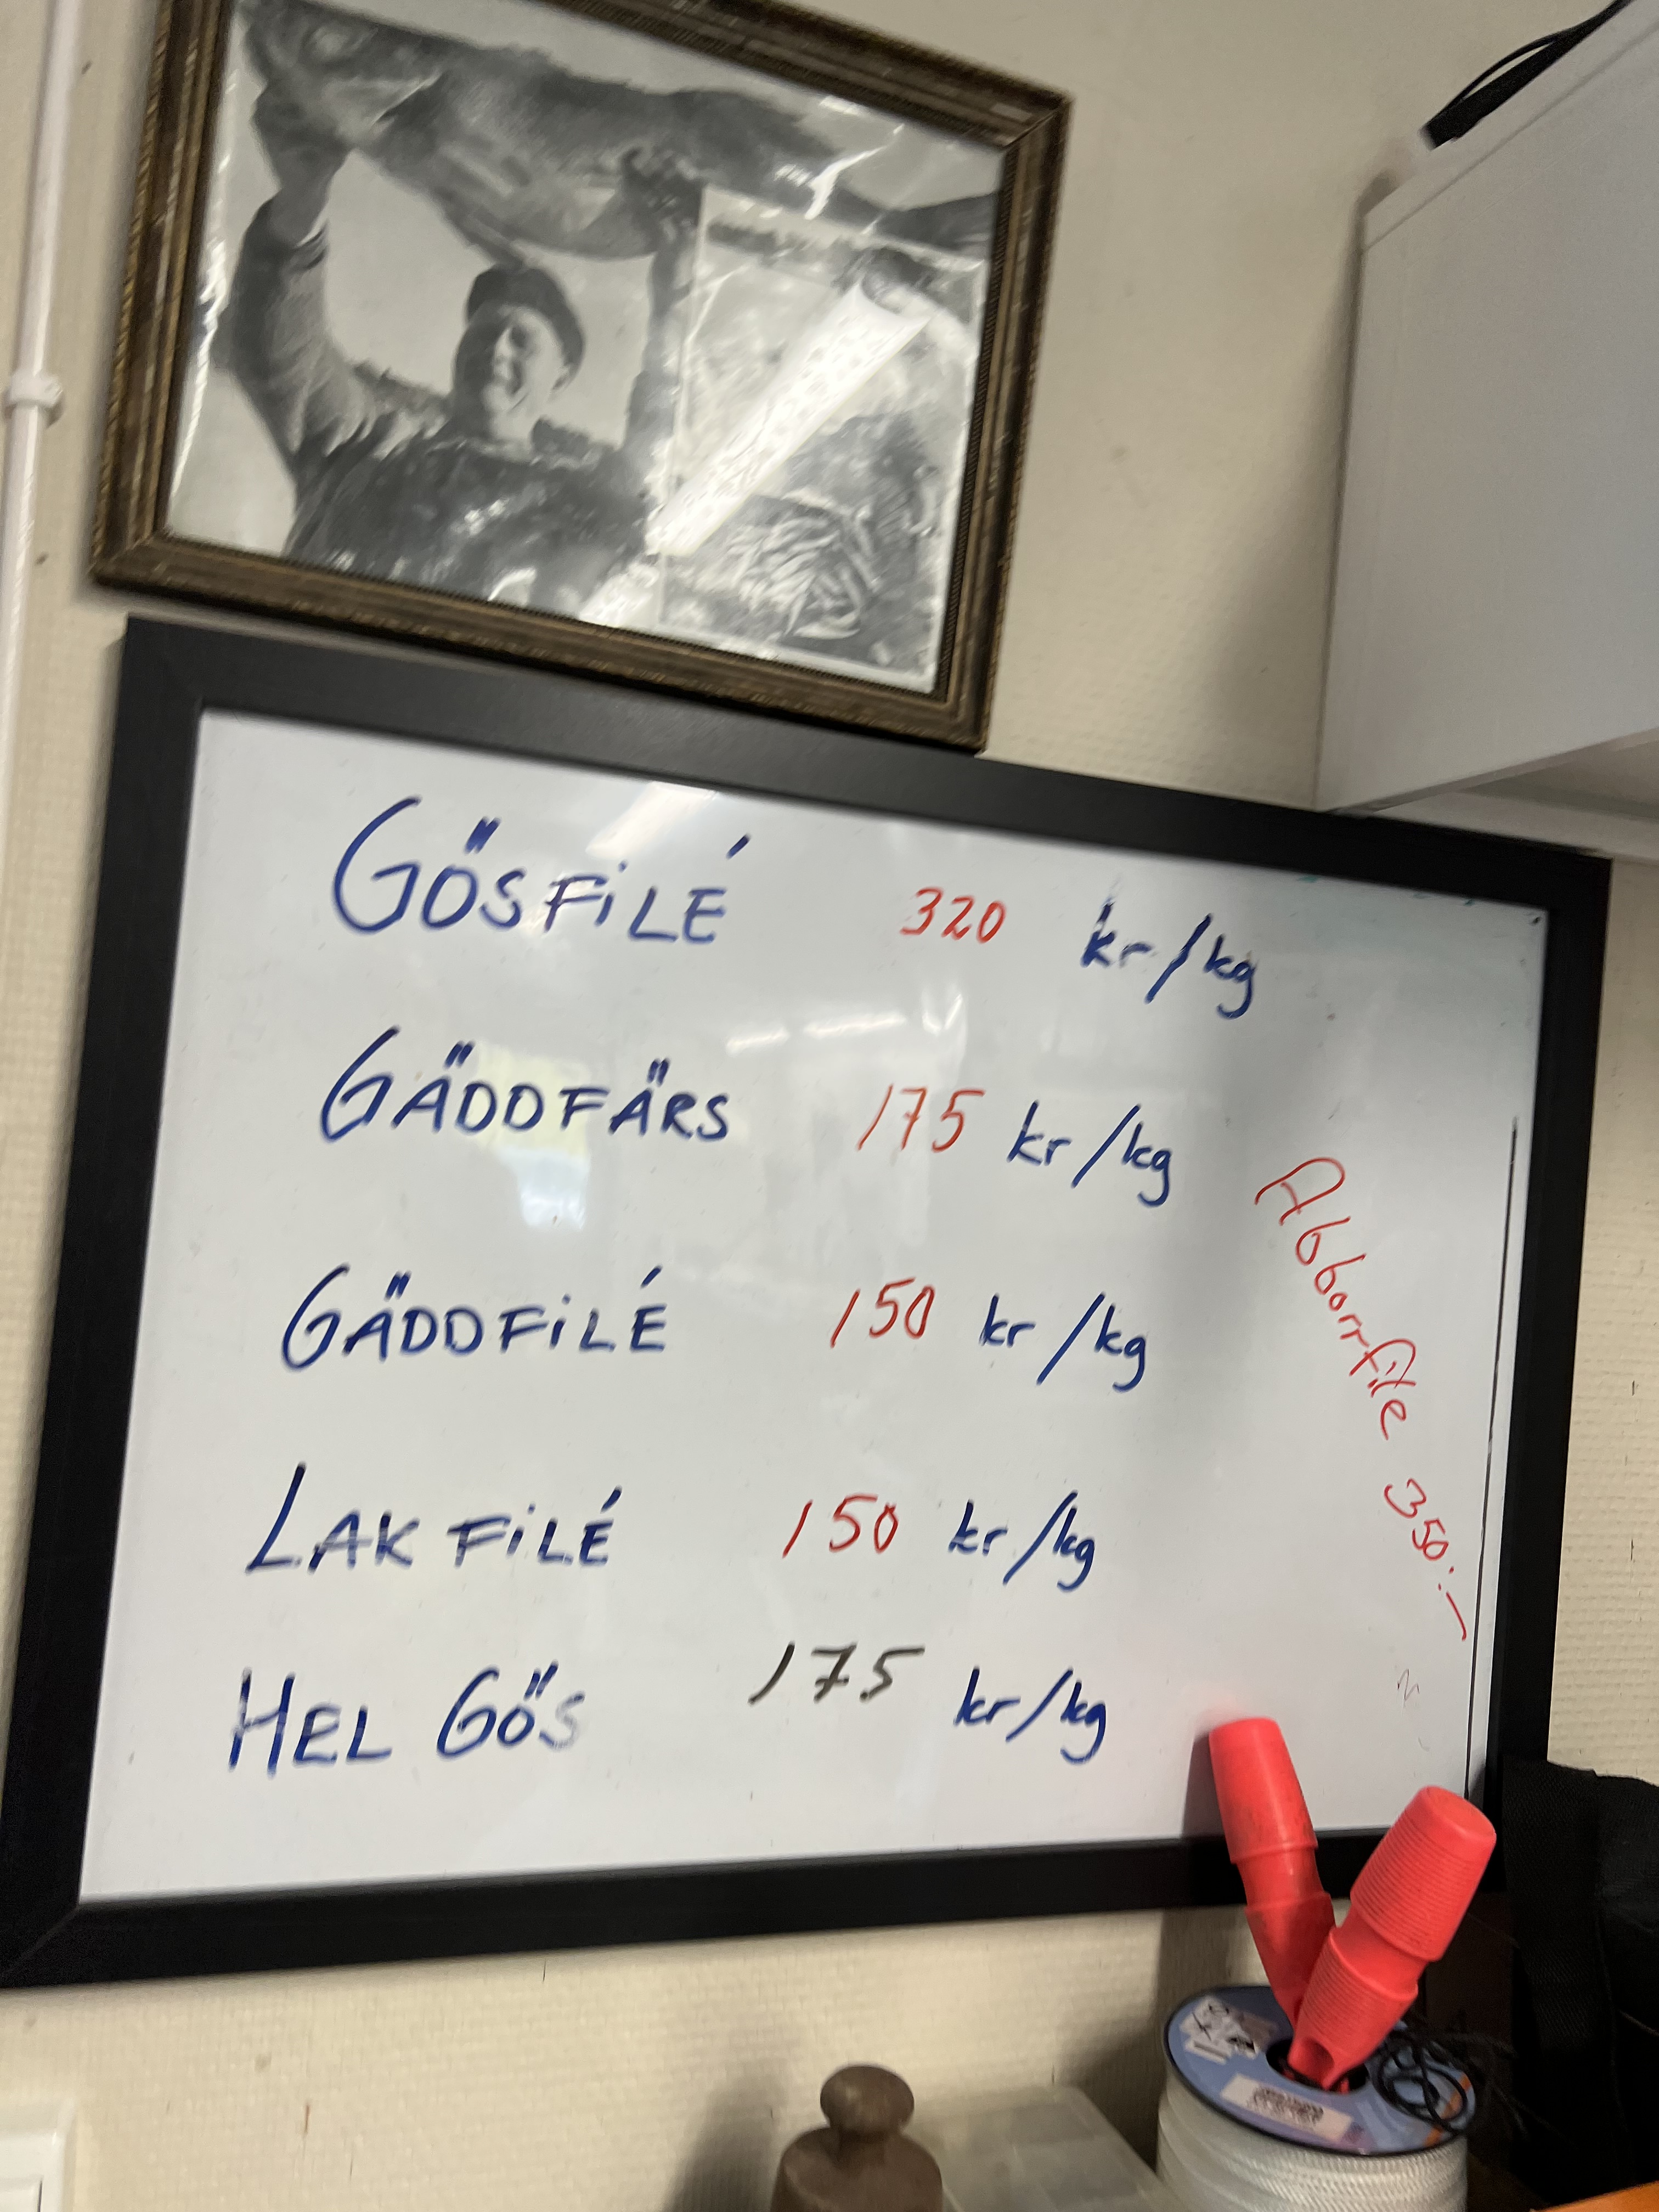 GÖSFiLÉ 320 kr/kg
GÄDDFÄRS 175 kr/kg
GÄDDFiLÉ 150 kr/kg
LAK FiLÉ 150 kr/kg
HEL GÖS 175 kr/kg
Abborrfile 350:-